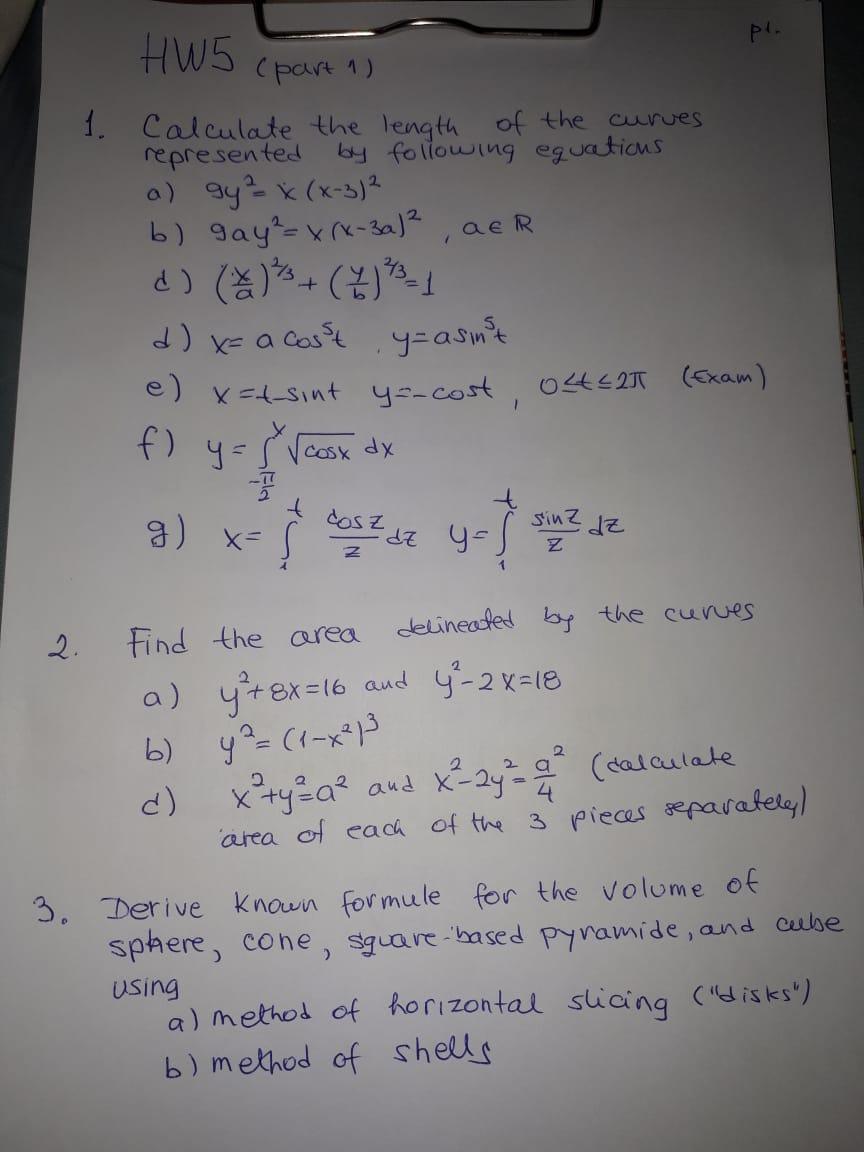 p1.
HW5 (part 1)
1. Calculate the length of the curves
represented by following equations
a) 9y² = x (x-3)²
b) 9ay² = x (x-3a)² , a ∈ ℝ
c) (x/a)^2/3 + (y/b)^2/3 = 1
d) x = a cos⁵t , y = a sin⁵t
e) x = t - sint y = - cost , 0 ≤ t ≤ 2π (Exam)
f) y = ∫_{-π/2}^{x} √cosx dx
g) x = ∫_{1}^{t} cosz/z dz y = ∫_{1}^{t} sinz/z dz
2. Find the area delineated by the curves
a) y² + 8x = 16 and y² - 2x = 18
b) y² = (1-x²)³
c) x² + y² = a² and x² - 2y² = a²/4 (calculate
area of each of the 3 pieces separately)
3. Derive known formule for the volume of
sphere, cone, square-based pyramide, and cube
using
a) method of horizontal slicing ("disks")
b) method of shells